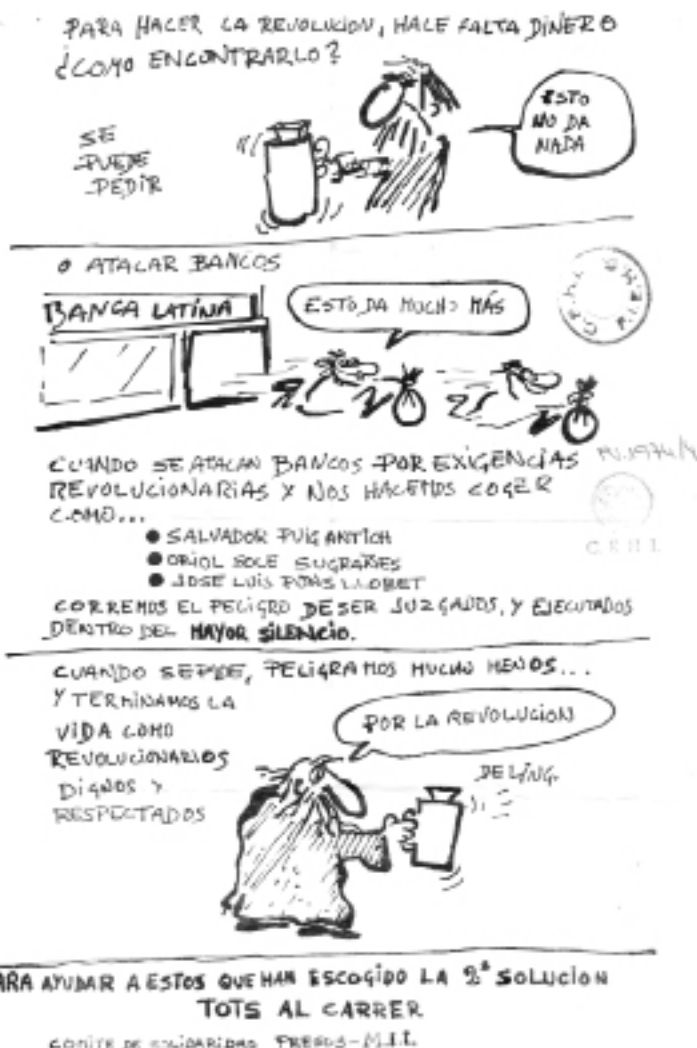 PARA HACER LA REVOLUCION, HACE FALTA DINERO
¿COMO ENCONTRARLO?
SE
PUEDE
PEDIR
ESTO
NO DA
NADA
O ATACAR BANCOS
BANCA LATINA
ESTO DA MUCHO MÁS
CUANDO SE ATACAN BANCOS POR EXIGENCIAS
REVOLUCIONARIAS Y NOS HACEMOS COGER
COMO...
● SALVADOR PUIG ANTICH
● ORIOL SOLE SUGRAÑES
● JOSE LUIS PONS LLOBET
CORREMOS EL PELIGRO DE SER JUZGADOS, Y EJECUTADOS
DENTRO DEL MAYOR SILENCIO.
CUANDO SE PIDE, PELIGRAMOS MUCHO MENOS...
Y TERMINAMOS LA
VIDA COMO
REVOLUCIONARIOS
DIGNOS Y
RESPECTADOS
POR LA REVOLUCION
DELING.
ARA AYUDAR A ESTOS QUE HAN ESCOGIDO LA 2ª SOLUCION
TOTS AL CARRER
COMITE DE SOLIDARIDAD PRESOS-M.I.L.
C.E.H.I.